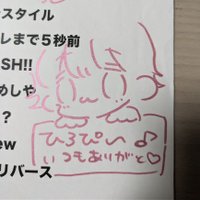 スタイル
レまで5秒前
SH!!
めしや
?
ew
リバース
ひろぴい♪
いつもありがと♡